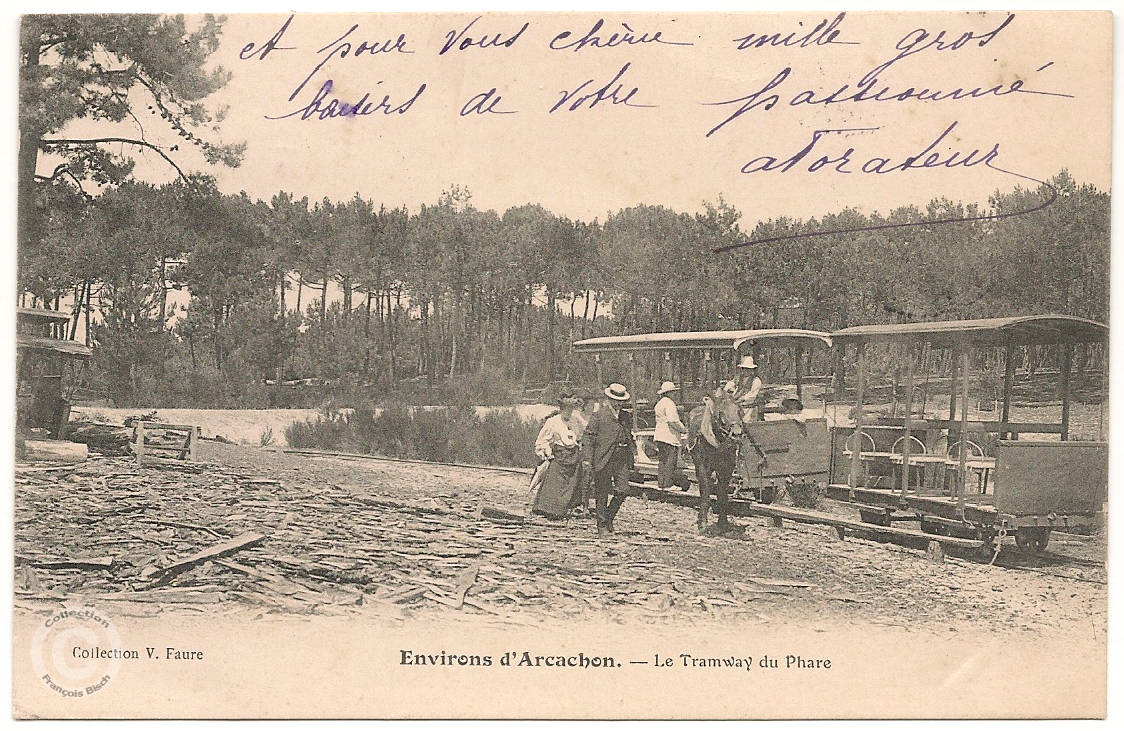 et pour Vous chérie mille gros
baisers de Votre passionné
adorateur
Collection V. Faure
Environs d'Arcachon. — Le Tramway du Phare
Collection
©
François Bisch